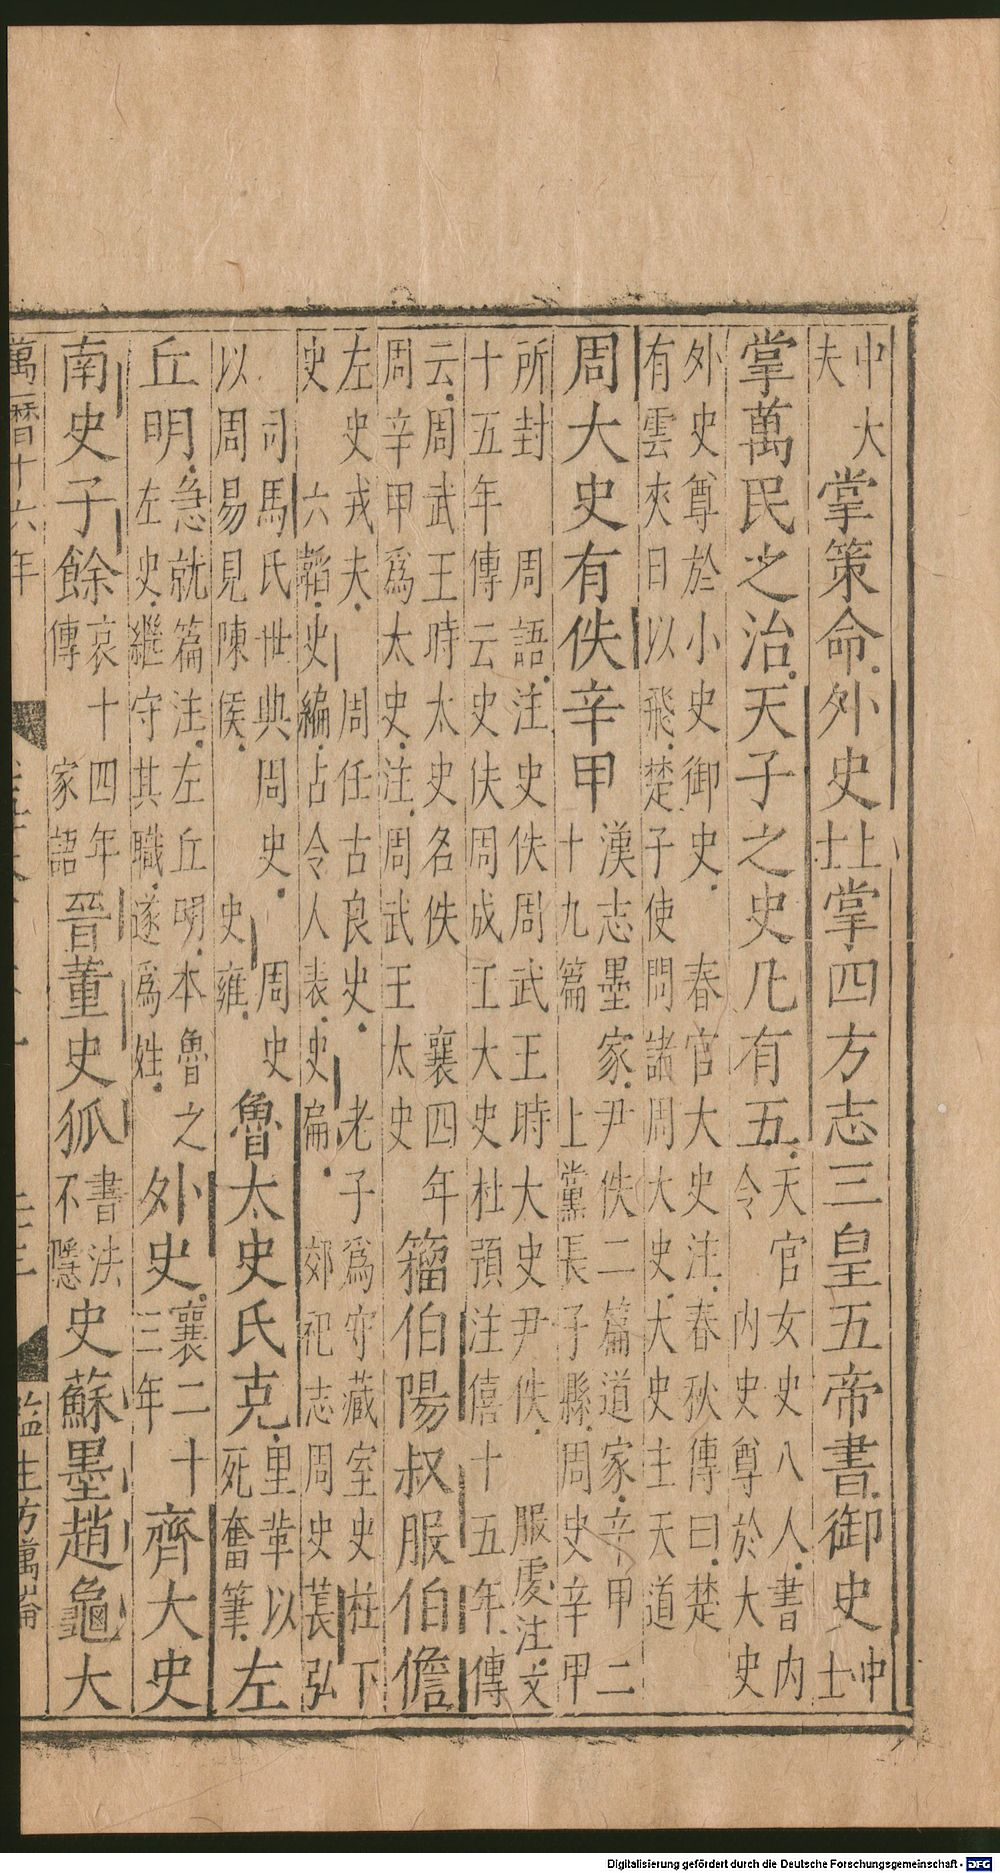 中大夫掌策命外史上士掌四方志三皇五帝書御史中士
掌萬民之治天子之史凡有五天官女史八人書内令内史尊於大史
外史尊於小史御史春官大史注春秋傳曰楚
有雲夾日以飛楚子使問諸周大史大史主天道
周大史有佚辛甲漢志墨家尹佚二篇道家辛甲二十九篇上黨長子縣周史辛甲
所封周語注史佚周武王時大史尹佚服虔注文
十五年傳云史佚周成王大史杜預注僖十五年傳
云周武王時太史名佚襄四年
周辛甲爲太史注周武王太史
籀伯陽叔服伯儋
左史戎夫周任古良史老子爲守藏室史柱下
史六韜史編占令人表史扁郊祀志周史萇弘
司馬氏世典周史周史
以周易見陳侯史雍
魯太史氏克里革以死奮筆左
丘明急就篇注左丘明本魯之左史繼守其職遂爲姓外史襄二十三年齊大史
南史子餘哀十四年傳家語晉董史狐書法不隱史蘇墨趙龜大
萬曆十六年
監生方萬
Digitalisierung gefördert durch die Deutsche Forschungsgemeinschaft - DFG